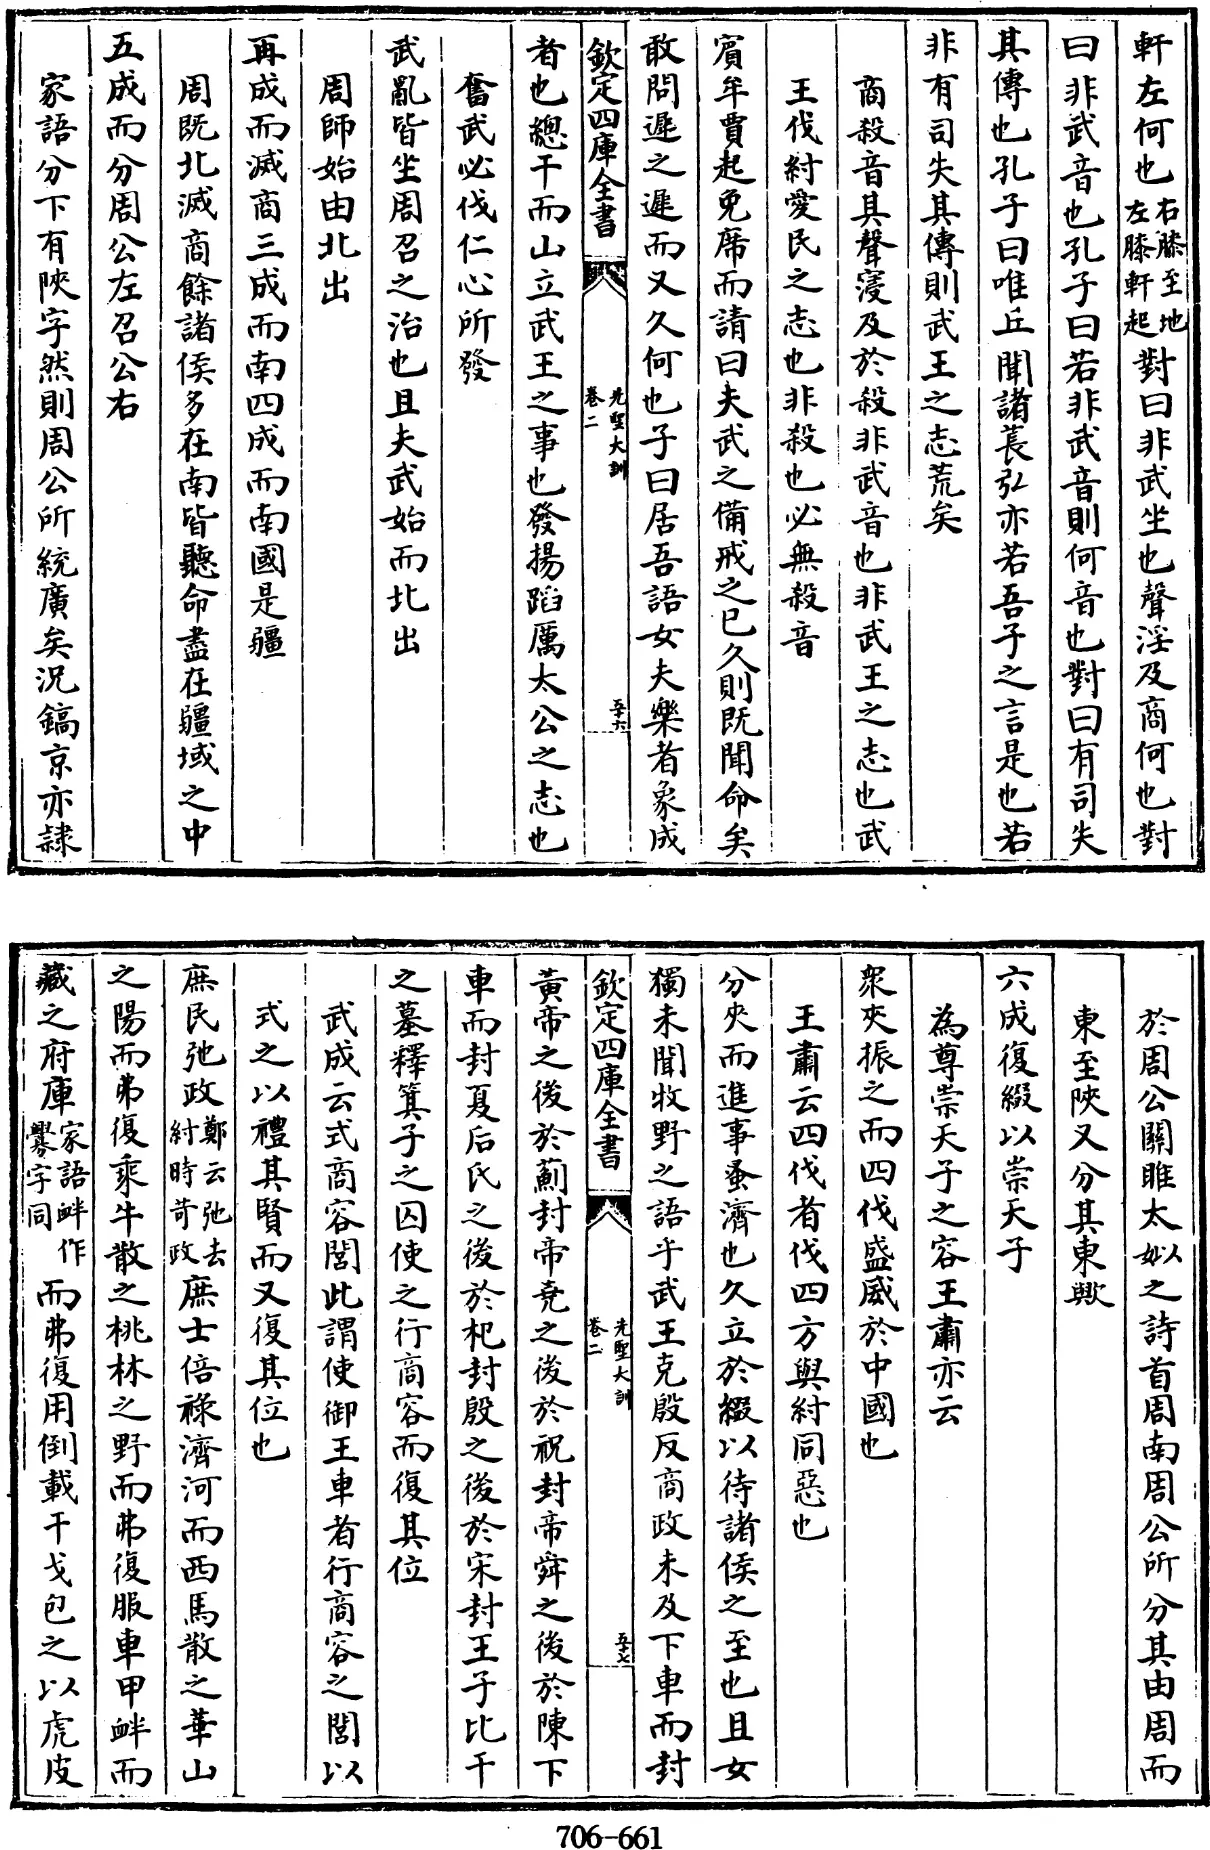 軒左何也右膝至地左膝軒起對曰非武坐也聲淫及商何也對
曰非武音也孔子曰若非武音則何音也對曰有司失
其傳也孔子曰唯丘聞諸萇弘亦若吾子之言是也若
非有司失其傳則武王之志荒矣
商殺音其聲寖及於殺非武音也非武王之志也武
王伐紂愛民之志也非殺也必無殺音
賓牟賈起免席而請曰夫武之備戒之已久則既聞命矣
敢問遲之遲而又久何也子曰居吾語女夫樂者象成
欽定四庫全書
先聖大訓
卷二
五十六
者也總干而山立武王之事也發揚蹈厲太公之志也
奮武必伐仁心所發
武亂皆坐周召之治也且夫武始而北出
周師始由北出
再成而滅商三成而南四成而南國是疆
周既北滅商餘諸侯多在南皆聽命盡在疆域之中
五成而分周公左召公右
家語分下有陝字然則周公所統廣矣況鎬京亦隸
於周公關雎太姒之詩首周南周公所分其由周而
東至陝又分其東歟
六成復綴以崇天子
為尊崇天子之容王肅亦云
衆夾振之而四伐盛威於中國也
王肅云四伐者伐四方與紂同惡也
分夾而進事蚤濟也久立於綴以待諸侯之至也且女
獨未聞牧野之語乎武王克殷反商政未及下車而封
欽定四庫全書
先聖大訓
卷二
五十七
黃帝之後於薊封帝堯之後於祝封帝舜之後於陳下
車而封夏后氏之後於杞封殷之後於宋封王子比干
之墓釋箕子之囚使之行商容而復其位
武成云式商容閭此謂使御王車者行商容之閭以
式之以禮其賢而又復其位也
庶民弛政鄭云弛去紂時苛政庶士倍祿濟河而西馬散之華山
之陽而弗復乘牛散之桃林之野而弗復服車甲衅而
藏之府庫家語衅作釁字同而弗復用倒載干戈包之以虎皮
706-661